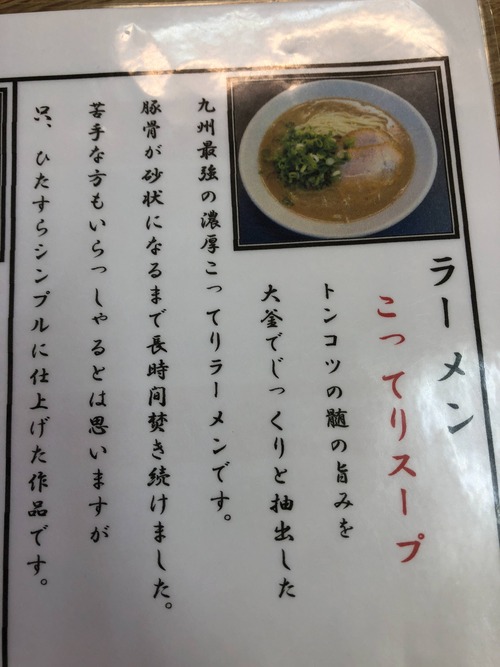 ラーメン
こってりスープ
トンコツの髄の旨みを
大釜でじっくりと抽出した
九州最強の濃厚こってりラーメンです。
豚骨が砂状になるまで長時間焚き続けました。
苦手な方もいらっしゃるとは思いますが
只、ひたすらシンプルに仕上げた作品です。